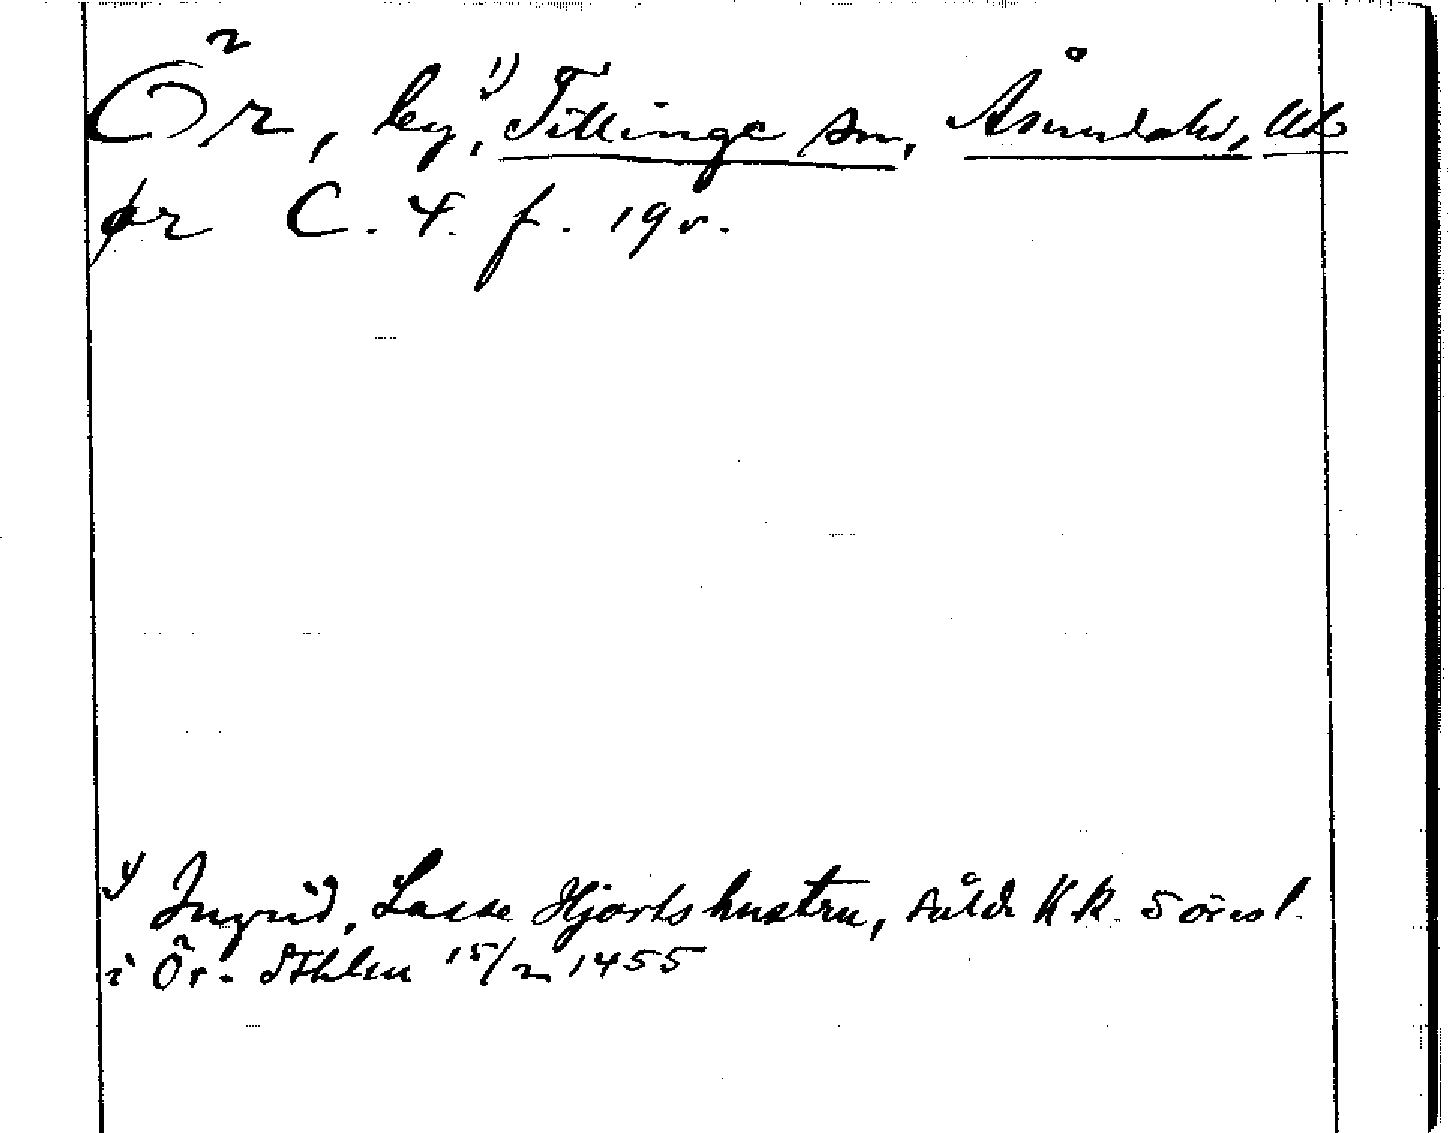 Ör, by,¹⁾ Tillinge sn, Åsundahd, Upl
ør C. 4. f. 19 v.
¹⁾ Ingrid, Lasse Hjorts hustru, sålde KK 5 öresl.
i Ör. Sthlm 15/2 1455